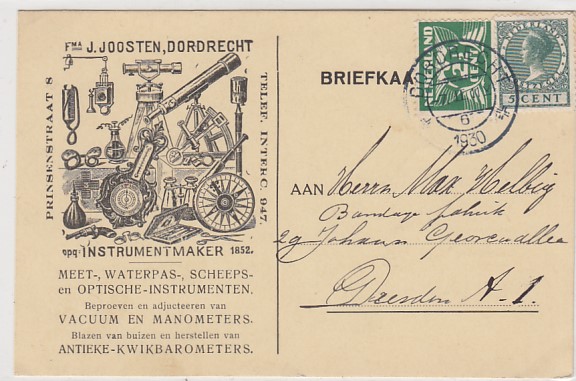 Fma J. JOOSTEN, DORDRECHT
PRINSENSTRAAT 8
TELEF. INTERC. 947.
opg. INSTRUMENTMAKER 1852.
MEET-, WATERPAS-, SCHEEPS-
en OPTISCHE-INSTRUMENTEN.
Beproeven en adjusteeren van
VACUUM EN MANOMETERS.
Blazen van buizen en herstellen van
ANTIEKE-KWIKBAROMETERS.
NEDERLAND
2½
CENT
NEDERLAND
5 CENT
6
1930
BRIEFKAART
AAN Herrn Max Helbig
Bandage fabrik
29 Johann Georgenallee
Dresden A-1.